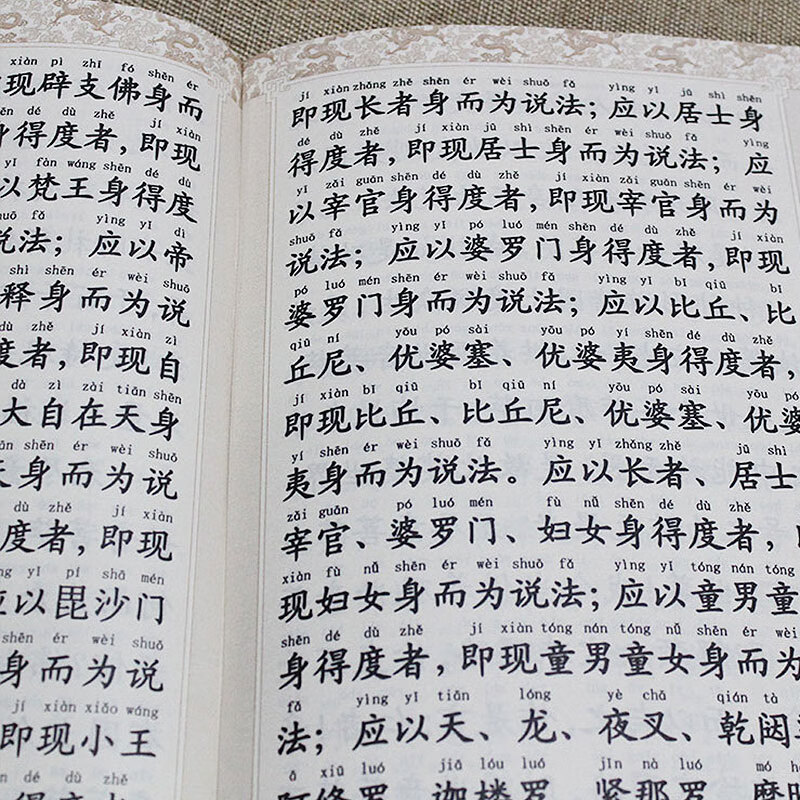 xiàn pì zhī fó shēn ér
现辟支佛身而
dé dù zhě jí xiàn
身得度者，即现
yī fàn wáng shēn dé dù
以梵王身得度
shuō fǎ yìng yǐ dì
说法；应以帝
shì shēn ér wèi shuō
释身而为说
dù zhě jí xiàn zì
度者，即现自
dà zì zài tiān shēn
大自在天身
shēn ér wèi shuō
天身而为说
dù zhě jí xiàn
度者，即现
yìng yǐ pí shā mén
应以毘沙门
shēn ér wèi shuō
身而为说
jí xiàn xiǎo wáng
即现小王
dé dù zhě
得度者
jí xiàn zhǎng zhě shēn ér wèi shuō fǎ yìng yǐ jū shì shēn
即现长者身而为说法；应以居士身
dé dù zhě jí xiàn jū shì shēn ér wèi shuō fǎ yìng
得度者，即现居士身而为说法；应
yǐ zǎi guān shēn dé dù zhě jí xiàn zǎi guān shēn ér wèi
以宰官身得度者，即现宰官身而为
shuō fǎ yìng yǐ pó luó mén shēn dé dù zhě jí xiàn
说法；应以婆罗门身得度者，即现
pó luó mén shēn ér wèi shuō fǎ yìng yǐ bǐ qiū bǐ
婆罗门身而为说法；应以比丘、比
qiū ní yōu pó sài yōu pó yí shēn dé dù zhě
丘尼、优婆塞、优婆夷身得度者，
jí xiàn bǐ qiū bǐ qiū ní yōu pó sài yōu pó
即现比丘、比丘尼、优婆塞、优婆
yí shēn ér wèi shuō fǎ yìng yǐ zhǎng zhě jū shì
夷身而为说法。应以长者、居士
zǎi guān pó luó mén fù nǚ shēn dé dù zhě
宰官、婆罗门、妇女身得度者，
xiàn fù nǚ shēn ér wèi shuō fǎ yìng yǐ tóng nán tóng
现妇女身而为说法；应以童男童
shēn dé dù zhě jí xiàn tóng nán tóng nǚ shēn ér wèi
身得度者，即现童男童女身而为
fǎ yìng yǐ tiān lóng yè chā qián tà
法；应以天、龙、夜叉、乾闼
ā xiū luó jiā lóu luó jǐn nà luó mó hóu
阿修罗、迦楼罗、紧那罗、摩睺